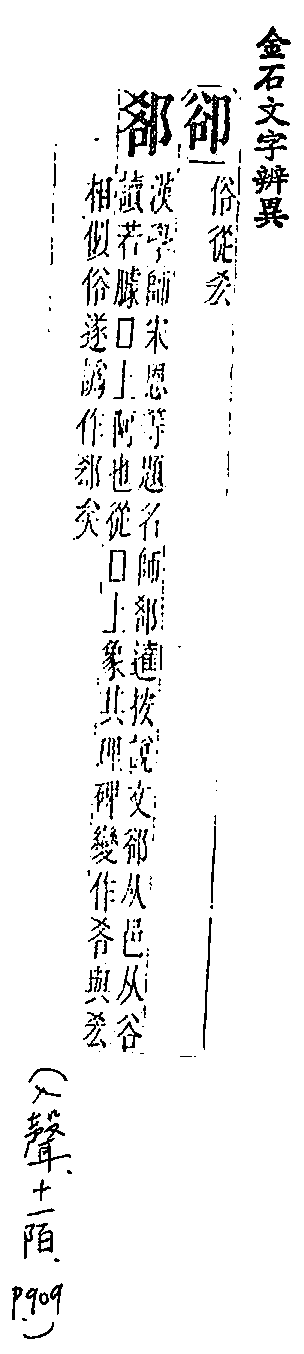 金石文字辨異
郤
俗從
郄
漢學師宋恩等題名師郄遺按說文郤从邑从谷
讀若臄口上阿也從口上象其理碑變作
相似俗遂譌作郄矣
(入聲十一陌 p.909)